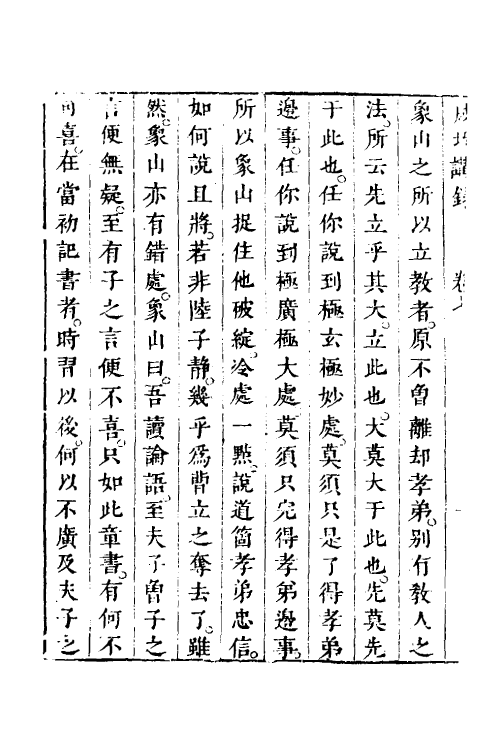 講錄
象山之所以立教者。原不曾離却孝弟。別有教人之
法。所云先立乎其大。立此也。大莫大于此也。先莫先
于此也。任你說到極玄極妙處。莫須只是了得孝弟
邊事。任你說到極廣極大處。莫須只完得孝弟邊事。
所以象山捉住他破綻。冷處一點。說道箇孝弟忠信。
如何說且將。若非陸子靜。幾乎爲曹立之奪去了。雖
然。象山亦有錯處。象山曰。吾讀論語。至夫子曾子之
言便無疑。至有子之言便不喜。只如此章書。有何不
可喜。在當初記書者。時習以後。何以不廣及夫子之